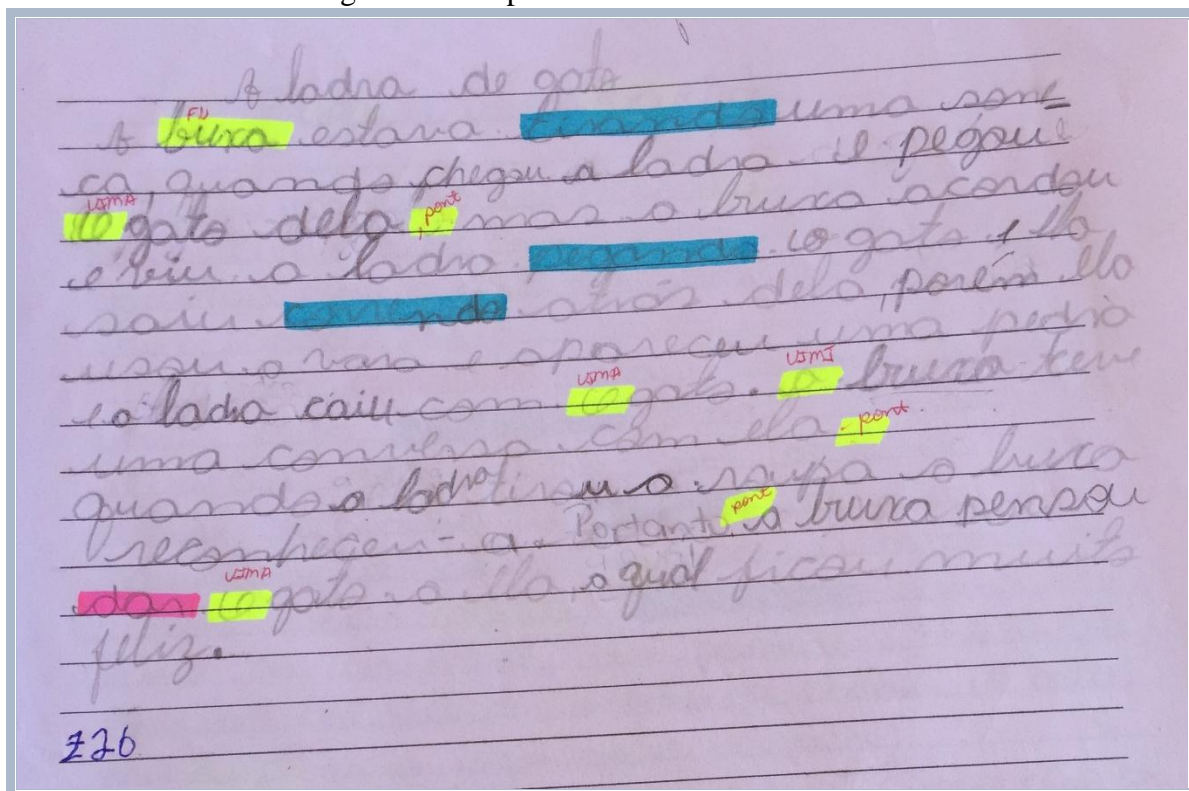 A ladra de gato
FU
A buxa estava tirando uma sone
ca, quando chegou a ladra e pegou
UIMA pont
o gato dela, mas a bruxa acordou
e viu a ladra pegando o gato e ela
saiu correndo atrás dela, porém ela
usou a vara e apareceu uma pedra
UIMA UIMI
e a ladra caiu com o gato. a bruxa teve
pont
uma conversa com ela.
quando a ladra tirou a roupa a bruxa
pont
reconheceu-a. Portanto, a bruxa pensou
UIMA
dar o gato a ela, o qual ficou muito
feliz.
Z26